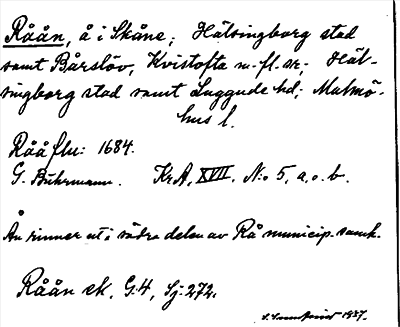 Råån, å i Skåne; Hälsingborg stad
samt Bårslöv, Kvistofta m. fl. sk; Häl-
singborg stad samt Luggude hd; Malmö-
hus l.
Råå flu: 1684.
G. Buhrmann. Kr.A, XVII. N:o 5, a. o. b.
Ån rinner ut i södra delen av Rå municip. samh.
Råån ek. G:4, Sj: 272.
1937.